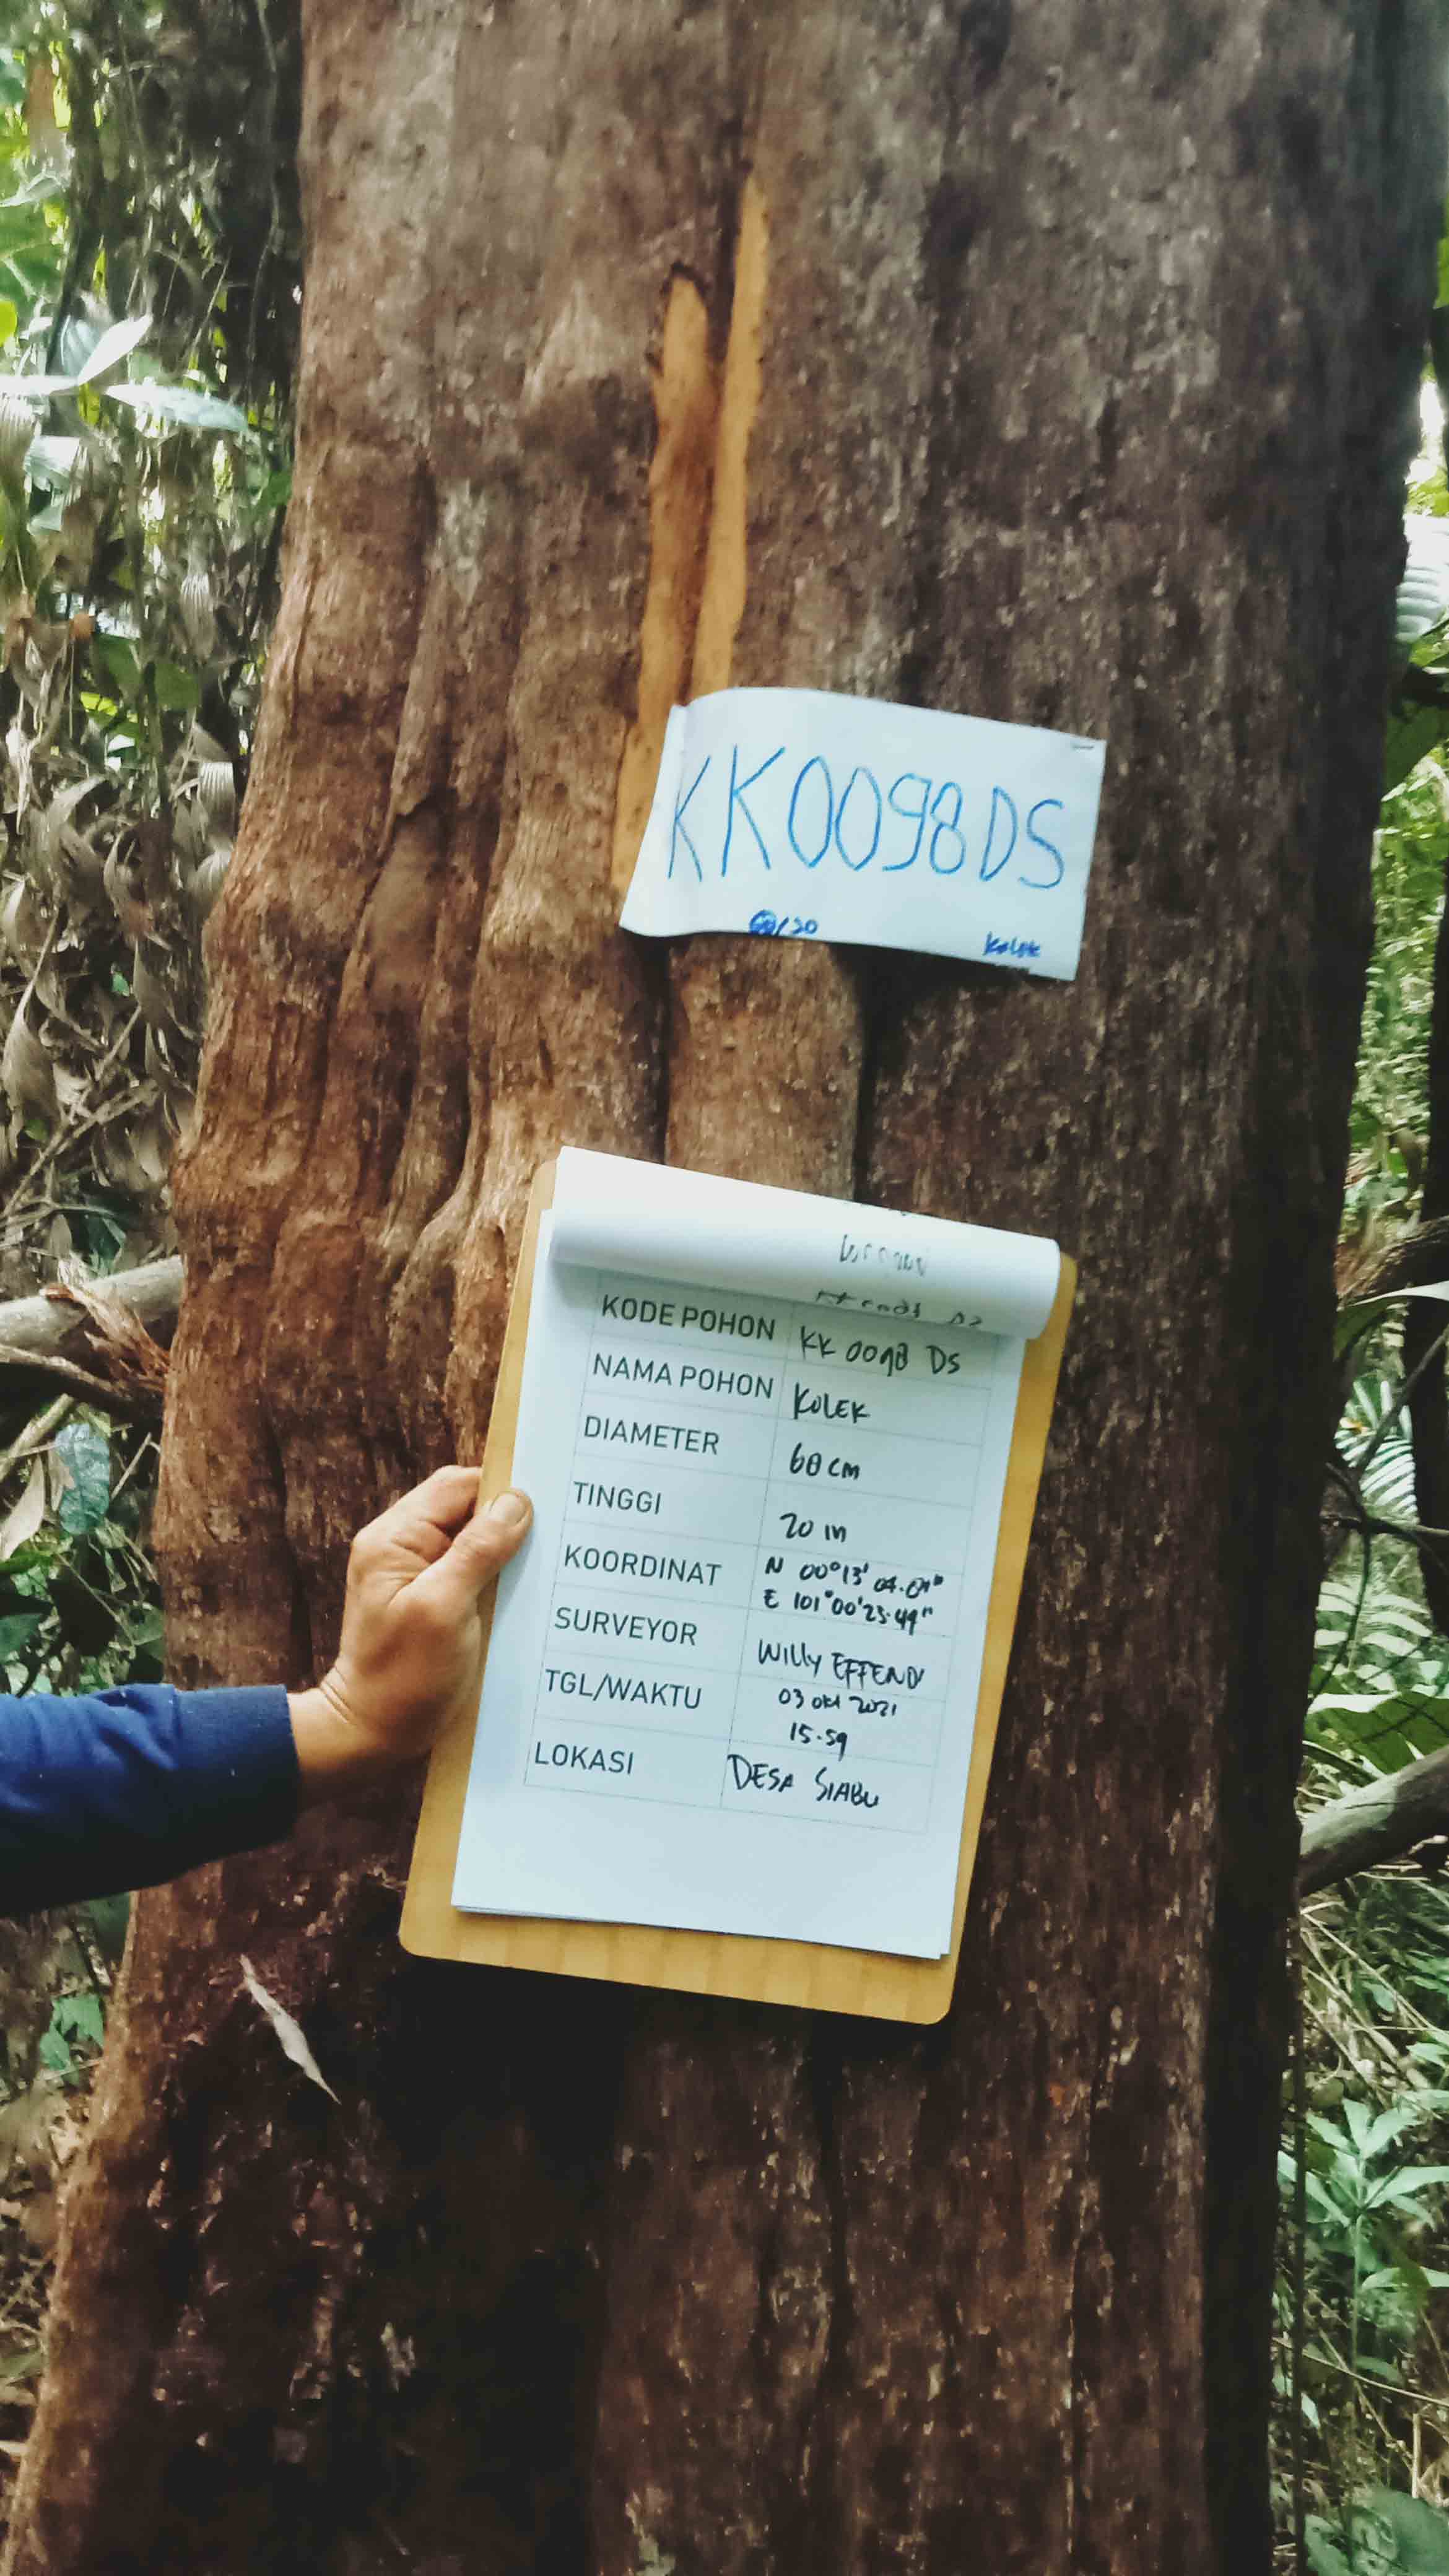 KK0098DS
/20
Kolek
KODE POHON KK 0098 DS
NAMA POHON KOLEK
DIAMETER 60 cm
TINGGI 20 m
KOORDINAT N 00°13' 04.01"
E 101°00'23.49"
SURVEYOR WILLY EFFENDI
TGL/WAKTU 03 okt 2021
15.59
LOKASI DESA SIABU